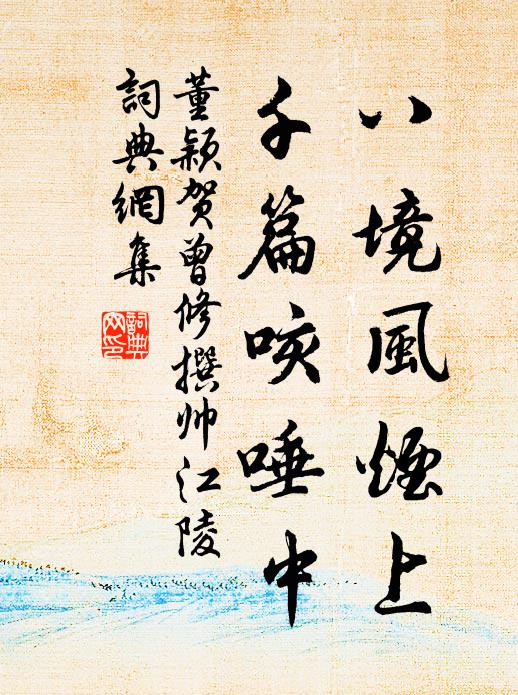 八境風煙上
千篇咳唾中
董颖贺曾修撰帅江陵
詞典網集
詞典網印